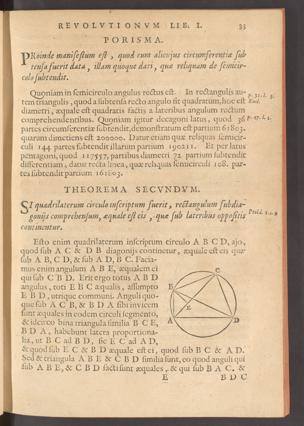 REVOLVTIONVM LIB. I. 33
PORISMA.
PRoinde manifestum est, quod cum alicujus circumferentia sub-
tensa fuerit data, illam quoque dari, quæ reliquam de semicir-
culo subtendit.
Quoniam in semicirculo angulus rectus est. In rectangulis au-
tem triangulis, quod à subtensa recto angulo fit quadratum, hoc est
diametri, æquale est quadratis factis à lateribus angulum rectum
comprehendentibus. Quoniam igitur decagoni latus, quod 36
partes circumferentiæ subtendit, demonstratum est partium 61803.
quarum dimetiens est 200000. Datur etiam quæ reliquas semicir-
culi 144 partes subtendit illarum partium 190211. Et per latus
pentagoni, quod 117557, partibus diametri 72 partium subtendit
differentiam, datur recta linea, quæ reliquas semicirculi 108. par-
tes subtendit partium 161803.
THEOREMA SECVNDVM.
SI quadrilaterum circulo inscriptum fuerit, rectangulum sub dia-
gonijs comprehensum, æquale est eis, quæ sub lateribus oppositis
continentur.
Esto enim quadrilaterum inscriptum circulo A B C D, ajo,
quod sub A C & D B diagonijs continetur, æquale est eis quæ
sub A B, C D, & sub A D, B C. Facia-
mus enim angulum A B E, æqualem ei
qui sub C B D. Erit ergo totus A B D
angulus, toti E B C æqualis, assumpto
E B D, utrique communi. Anguli quo-
que sub A C B, & B D A sibi invicem
sunt æquales in eodem circuli segmento,
& idcirco bina triangula similia B C E,
B D A, habebunt latera proportiona-
lia, ut B C ad B D, sic E C ad A D,
& quod sub E C & B D æquale est ei, quod sub B C & A D.
Sed & triangula A B E & C B D similia sunt, eo quod anguli qui
sub A B E, & C B D facti sunt æquales, & qui sub B A C, &
E B D C